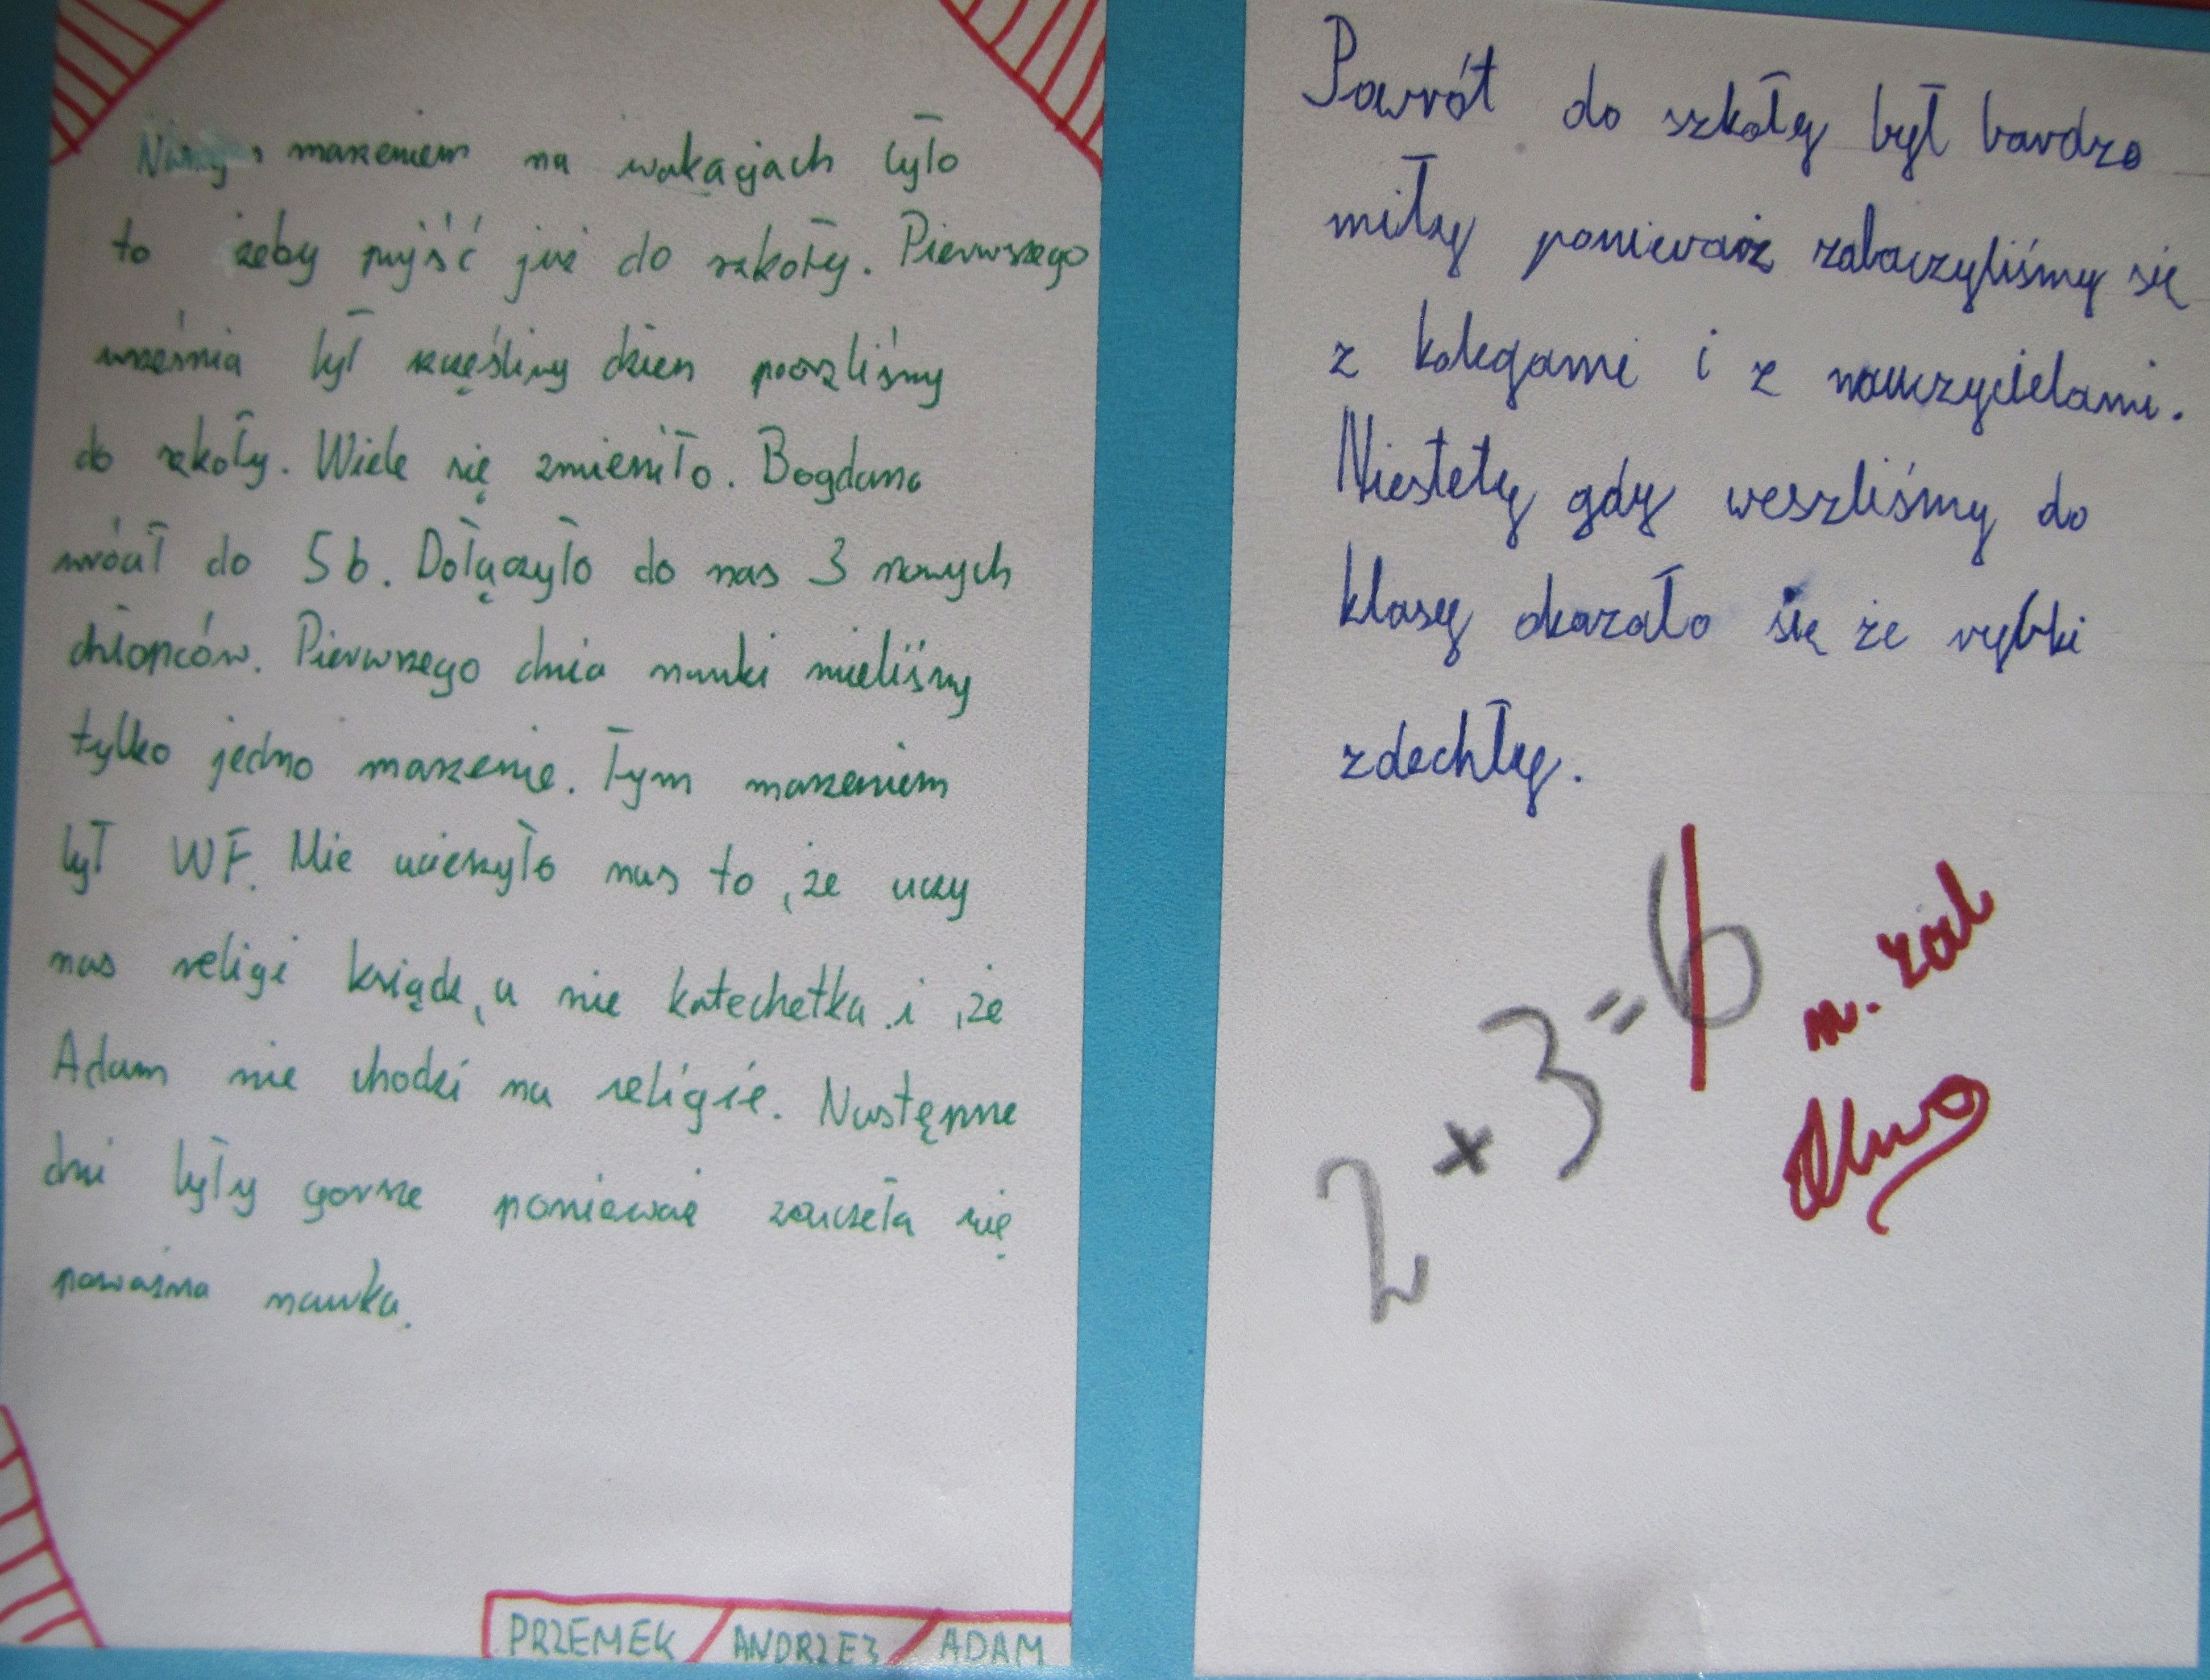 Naszym marzeniem na wakacjach było
to żeby pujść już do szkoły. Pierwszego
września był szczęśliwy dzien poszliśmy
do szkoły. Wiele się zmieniło. Bogdana
wrócił do 5b. Dołączyło do nas 3 nowych
chłopców. Pierwszego dnia nauki mieliśmy
tylko jedno marzenie. Tym marzeniem
był WF. Nie ucieszyło nas to, że uczy
nas religi ksiądz, a nie katechetka i, że
Adam nie chodzi na religie. Następne
dni były gorsze ponieważ zaczeła się
poważna nauka.
PRZEMEK / ANDRZEJ / ADAM
Powrót do szkoły był bardzo
miły ponieważ zobaczyliśmy się
z kolegami i z nauczycielami.
Niestety gdy weszliśmy do
klasy okazało się że rybki
zdechły.
2 x 3 = 6